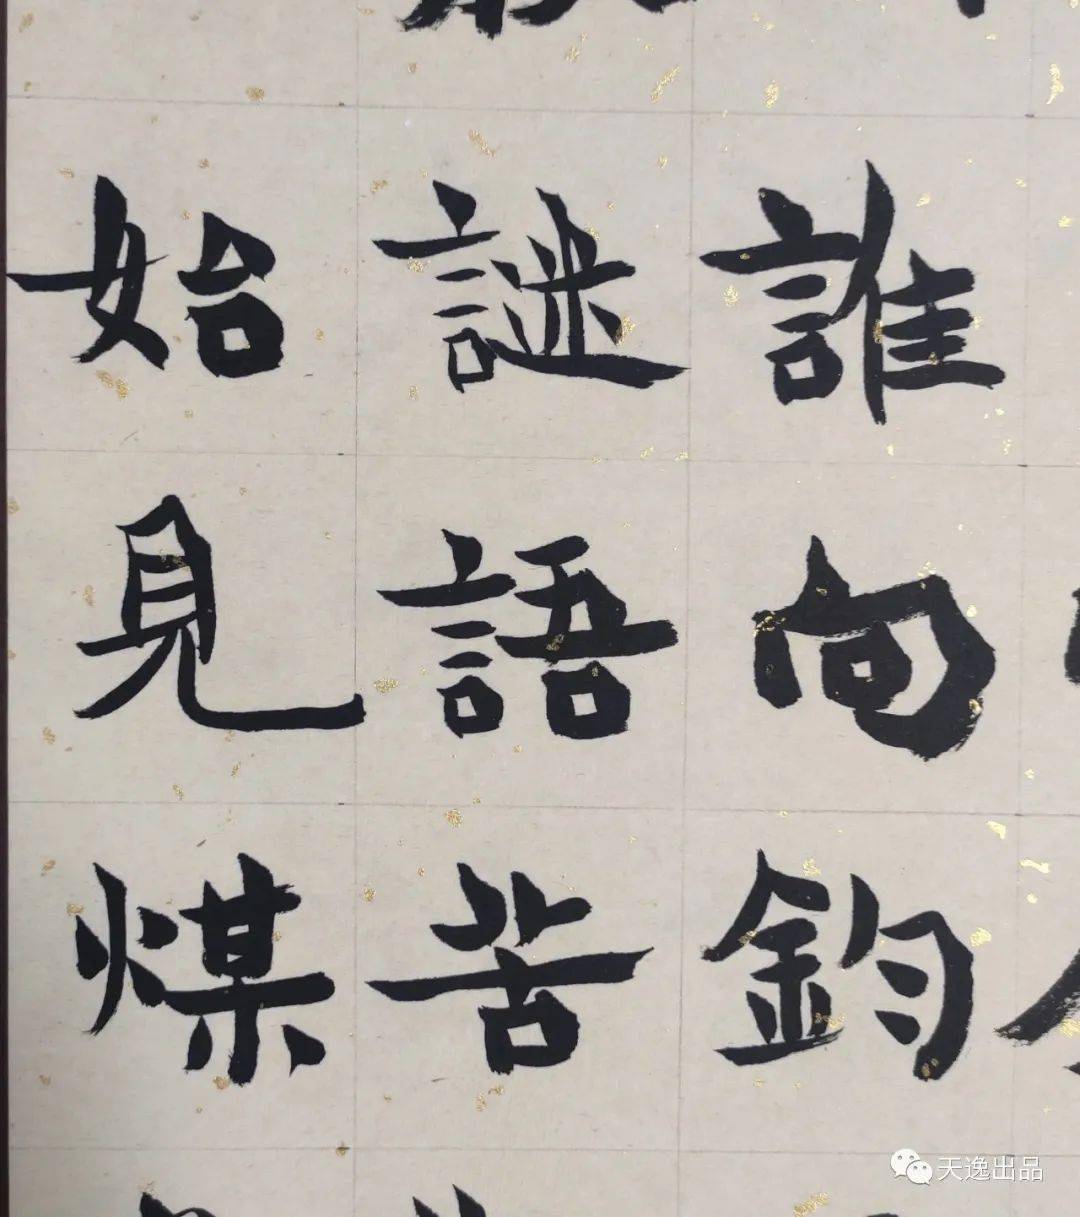 誰向鈞
謎語苦
始見煤
天逸出品